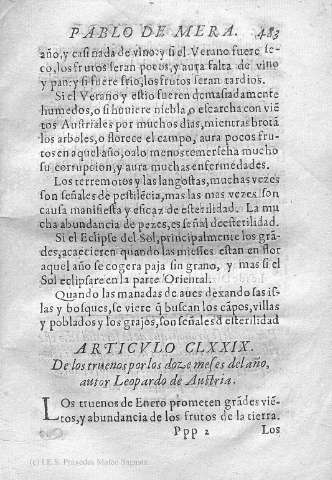 PABLO DE MERA. 483
año, y casi nada de vino: y si el Verano fuere se-
co, los frutos seran pocos, y aura falta de vino
y pan: y si fuere frio, los frutos seran tardios.
Si el Verano y estio fueren demasiadamente
humedos, o si huuiere niebla, o escarcha con viē
tos Australes por muchos dias, mientras brotā
los arboles, o florece el campo, aura pocos fru-
tos en aquel año, o alo menos temerseha mucho
su corrupcion, y aura muchas enfermedades.
Los terremotos y las langostas, muchas vezes
son señales de pestilēcia, mas las mas vezes son
causa manifiesta y eficaz de esterilidad. La mu
cha abundancia de pezes, es señal de esterilidad.
Si el Eclipse del Sol, principalmente los grā-
des, acaecieren quando las miesses estan en flor
aquel año se cogera paja sin grano, y mas si el
Sol eclipsare en la parte Oriental.
Quando las manadas de aues dexando las is-
las y bosques, se viere q̄ buscan los cāpos, villas
y poblados y los grajos, son señales d̄ esterilidad
ARTICVLO CLXXIX.
De los truenos por los doze meses del año,
autor Leopardo de Austria.
LOs truenos de Enero prometen grādes viē-
tos, y abundancia de los frutos de la tierra.
Ppp 2 Los
(c) I.E.S. Praxedes Mateo Sagasta